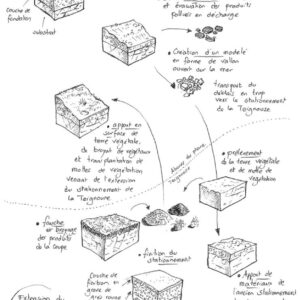 et évacuation des produits
pollués en décharge
couche de
fondation
substrat
• Création d'un modelé
en forme de vallon
ouvert sur la mer
transport du
déblais en trop
vers le stationnement
de la Teignouse
• apport en
surface de
terre végétale,
de broyat de végétaux
et transplantation de
mottes de végétation
venant de l'extension
du stationnement
de la Teignouse
• prélèvement
de la terre végétale
et de motte de
végétation
• fauche
et broyage
des produits
de la coupe
• finition du
stationnement
• Apport de
matériaux de
l'ancien stationnement
Couche de
finition en
grave de
gros rouge
Extension du